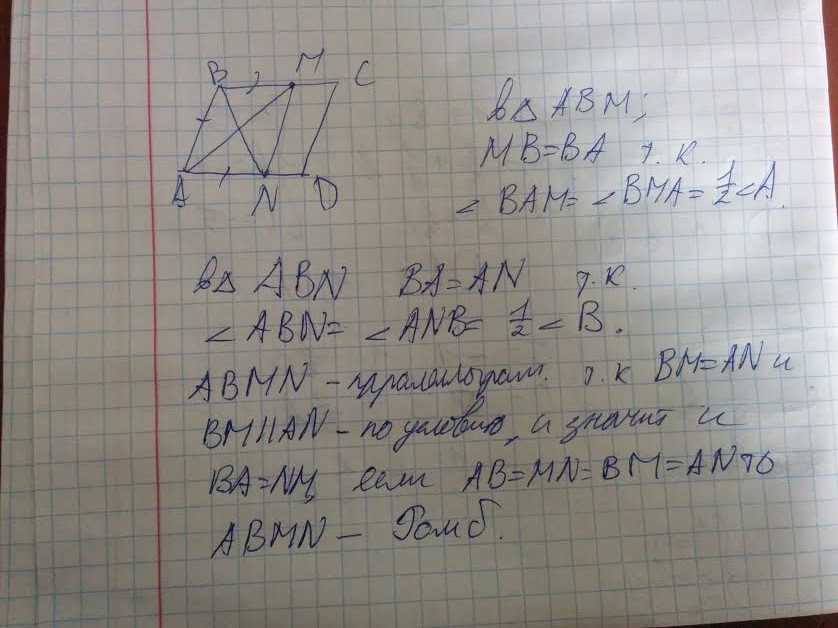 B M C
A N D
в△ ABM;
MB=BA т.к.
∠ BAM= ∠ BMA= 1/2 ∠A.
в△ ABN BA=AN т.к.
∠ ABN= ∠ ANB= 1/2 ∠ B.
ABMN - т.к BM=AN и
BM||AN - по условию, и значит и
BA=NM, если AB=MN=BM=AN то
ABMN - Ромб.